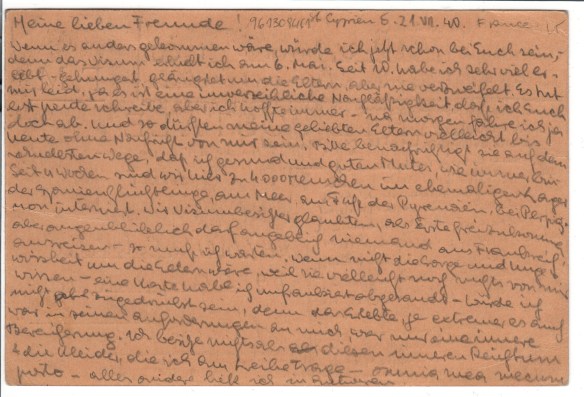 Meine lieben Freunde! St Cyprien 5. 21.VII.40. France
wenn es anders gekommen wäre, würde ich jetzt schon bei Euch sein, -
denn das Visum erhielt ich am 6. Mai. Seit 10. habe ich sehr viel er-
lebt - gehungert, geängstigt um die Eltern, aber nie verzweifelt. Es tut
mir leid, ja es ist eine unverzeihliche Nachlässigkeit, daß ich Euch
erst heute schreibe, aber ich hoffte immer - na morgen fahre ich ja
doch ab. Und so dürften meine geliebten Eltern vielleicht bis
heute ohne Nachricht von mir sein. Bitte benachrichtigt sie auf dem
schnellsten Wege, daß ich gesund und guten Mutes, wie immer bin
Seit 4 Wochen sind wir hier zu 4000 Menschen im ehemaligen Lager
der Spanienflüchtlinge, am Meer, am Fuß der Pyrenäen, bei Perpig-
non interniert. Wir Visumbesitzer glaubten, als Erste frei zu kommen
aber augenblicklich darf angeblich niemand aus Frankreich
ausreisen - so muß ich warten. Wenn nicht die Sorge und Unge-
wissheit um die Eltern wäre, weil sie vielleicht noch nichts von mir
wissen - eine Karte habe ich unfrankiert abgesandt - würde ich
nicht niedergedrückt sein, denn das Erlebte, je extremer es auch
war in seinen Anforderungen an mich war nur eine innere
Bereicherung. Ich besitze nichts als diesen inneren Reichtum
& die Kleider, die ich am Leibe trage - omnia mea mecum
porto - alles andere ließ ich in Antwerpen